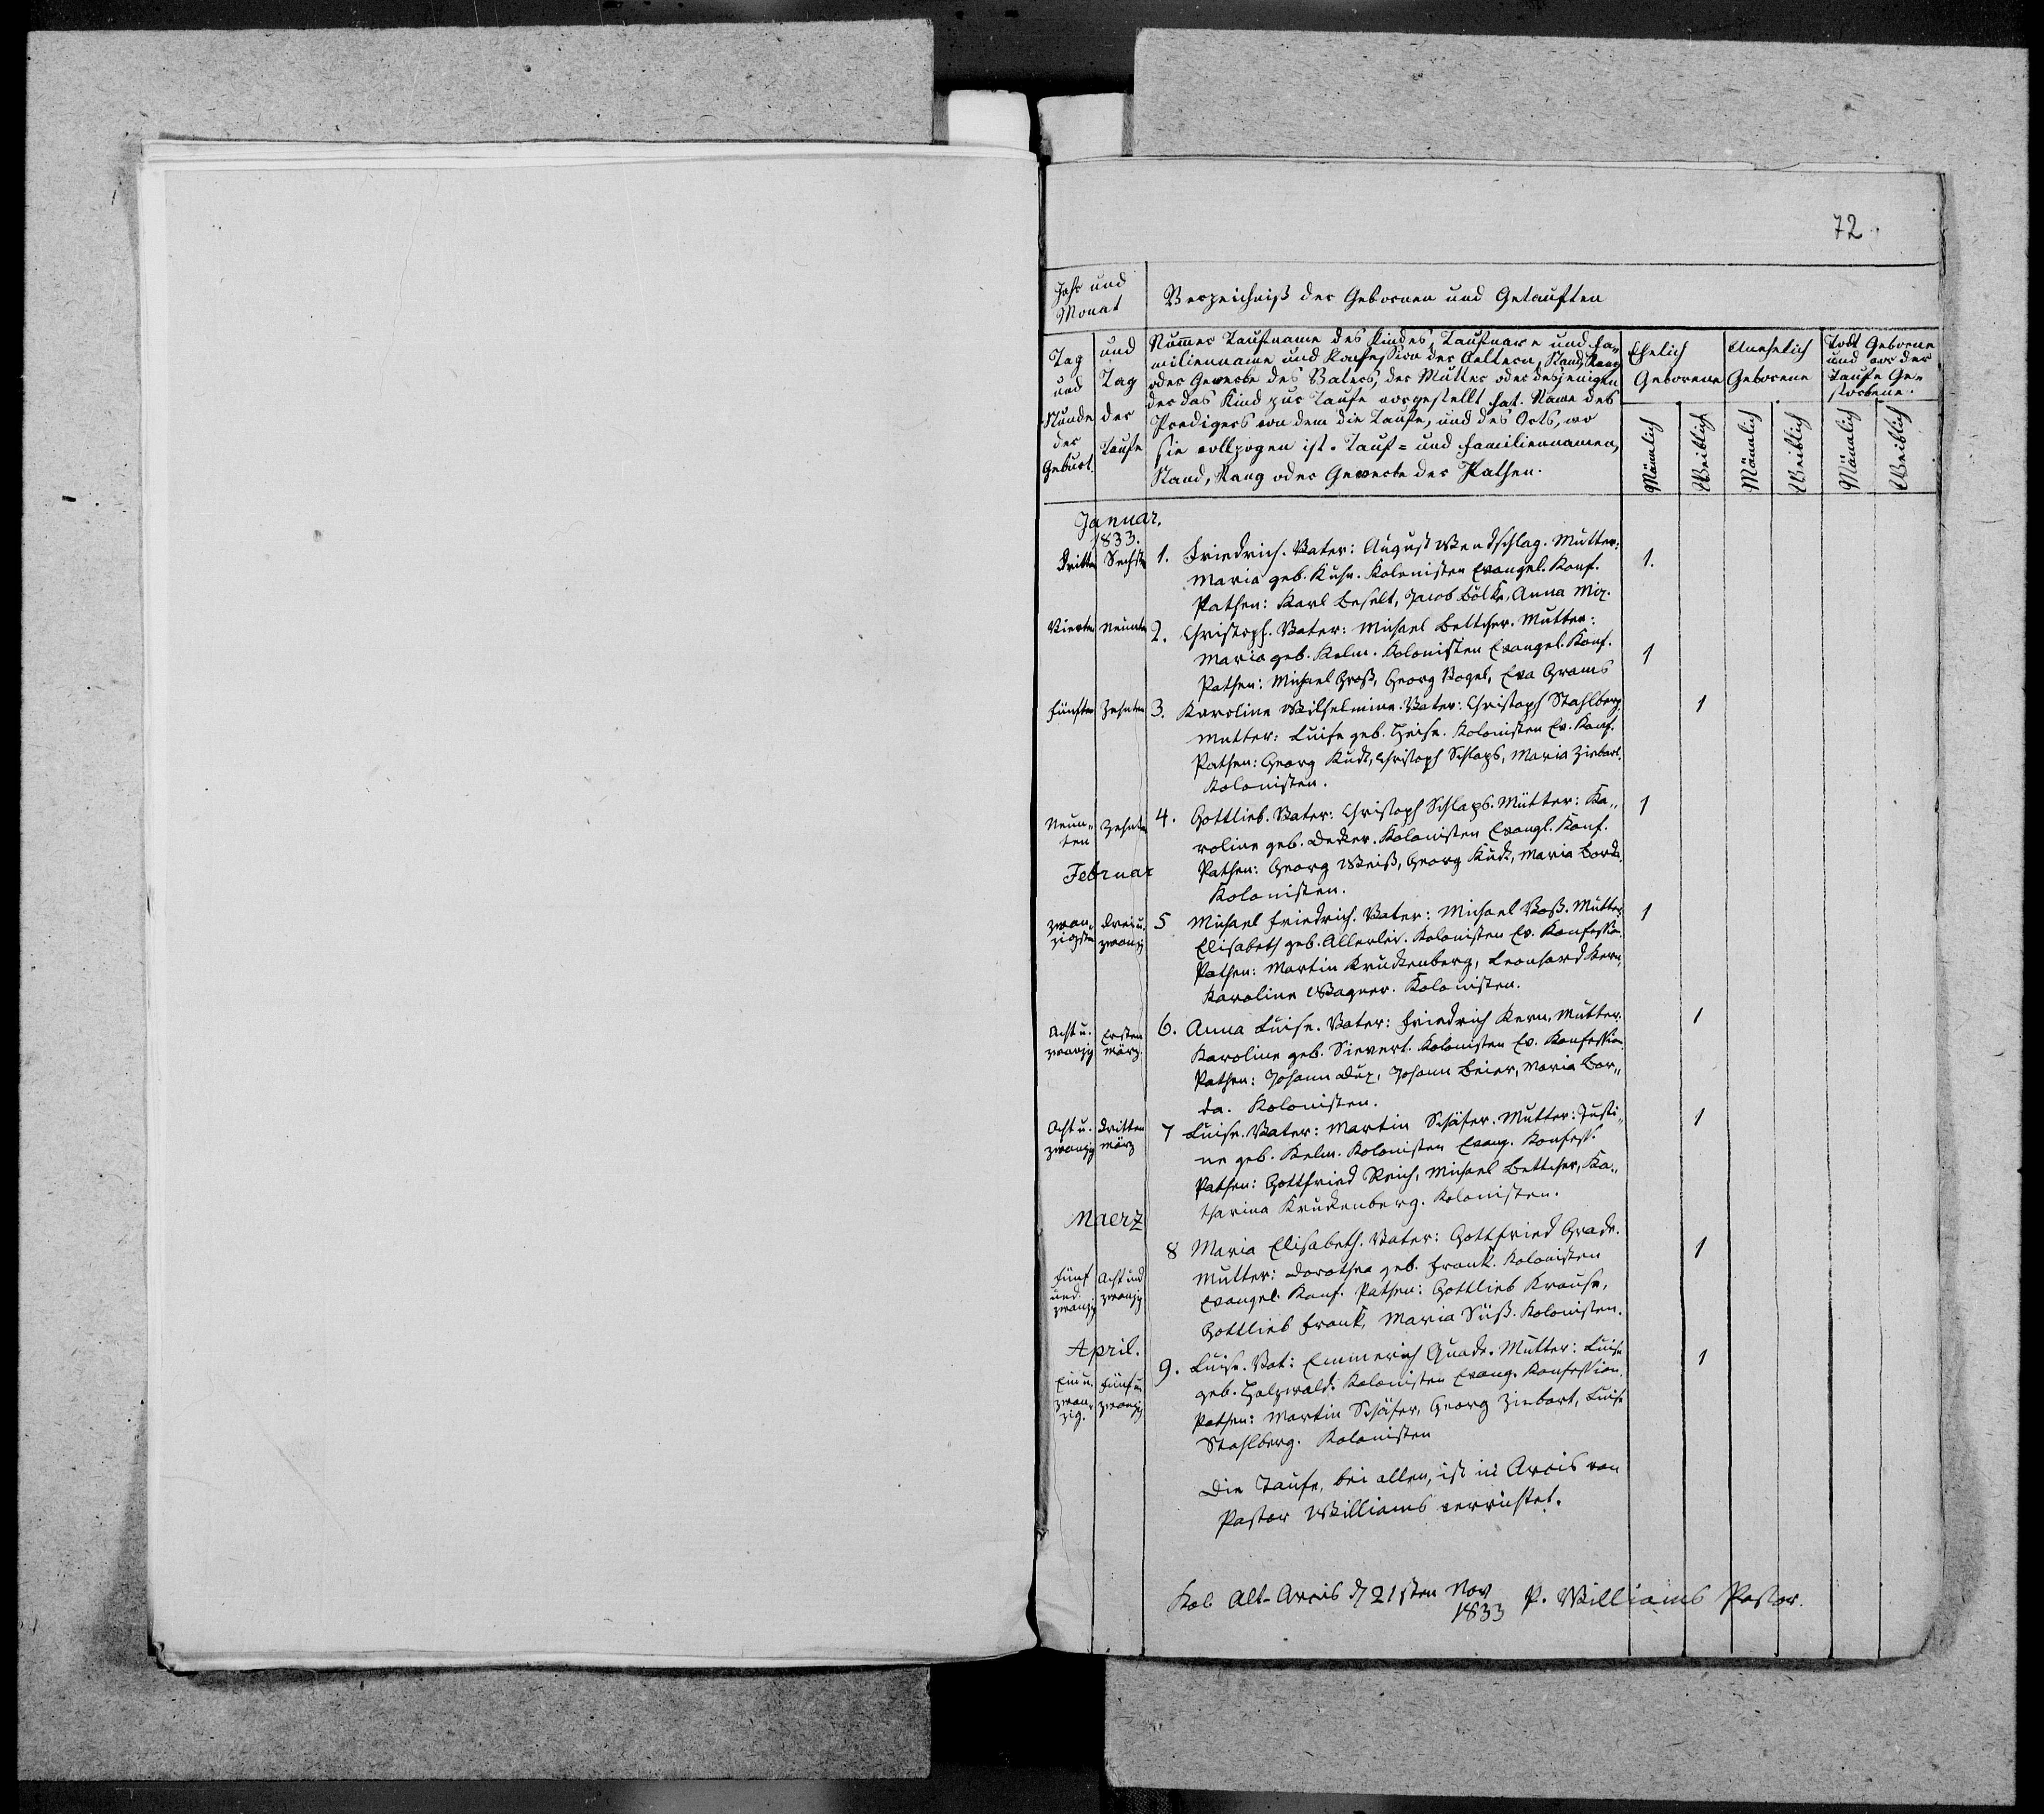 72.
Jahr und
Monat
Verzeichniß der Gebornen und Getauften
Tag
und
Stunde
der
Geburt.
und
Tag
der
Taufe
Numer Taufname des Kindes, Taufname und Fa-
milienname und Konfession der Aeltern, Stand, Rang
oder Gewerbe des Vaters, der Mutter oder desjenigen
der das Kind zur Taufe vorgestellt hat. Name des
Predigers von dem die Taufe, und des Orts, wo
sie vollzogen ist. Tauf- und Familiennamen,
Stand, Rang oder Gewerbe der Pathen.
Ehelich
Geborene
Unehelich
Geborene
Todt Geborne
und vor der
Taufe Ge-
storbene.
Mänlich
Weiblich
Mänlich
Weiblich
Mänlich
Weiblich
Januar.
1833.
Dritten Sechsten 1. Friedrich. Vater: August Wendschlag. Mutter: 1.
Maria geb. Kuhn. Kolonisten Evangel. Konf.
Pathen: Karl Beselt, Jacob Bölke, Anna Mix.
Vierten Neunten 2. Christoph. Vater: Michael Bettcher. Mutter:
Maria geb. Kelm. Kolonisten Evangel. Konf. 1
Pathen: Michael Groß, Georg Vogel, Eva Grams
Fünften Zehnten 3. Karoline Wilhelmine. Vater: Christoph Stahlberg 1
Mutter: Luise geb. Heise. Kolonisten Ev. Konf.
Pathen: Georg Kuck, Christoph Schlaps, Maria Ziebart.
Kolonisten.
Neun-
ten
Zehnten 4. Gottlieb. Vater: Christoph Schlaps. Mutter: Ka- 1
roline geb. Decker. Kolonisten Evangl. Konf.
Februar Pathen: Georg Weiß, Georg Kuck, Maria Borda.
Kolonisten.
zwan-
zigsten
Drei u.
zwanzig
5 Michael Friedrich. Vater: Michael Voß. Mutter 1
Elisabeth geb. Allerlei. Kolonisten Ev. Konfession.
Pathen: Martin Kruckenberg, Leonhard Kern,
Karoline Wagner. Kolonisten.
Acht u.
zwanzig
Ersten
März.
6. Anna Luise. Vater: Friedrich Kern, Mutter: 1
Karoline geb. Sievert. Kolonisten Ev. Konfession.
Pathen: Johann Dux, Johann Beier, Maria Bor-
da. Kolonisten.
Acht u.
zwanzig
Dritten
März
7 Luise. Vater: Martin Schäfer. Mutter: Justi- 1
ne geb. Kelm. Kolonisten Evang. Konfess.
Pathen: Gottfried Reich, Michael Bettcher, Ka-
tharina Kruckenberg. Kolonisten.
Maerz
8 Maria Elisabeth. Vater: Gottfried Grade. 1
Fünf
und
zwanzig
Acht und
zwanzig
Mutter: Dorothea geb. Frank. Kolonisten
Evangel. Konf. Pathen: Gottlieb Krause,
Gottlieb Frank, Maria Süß. Kolonisten.
April.
Ein u.
zwan-
zig.
Fünf u.
zwanzig
9. Luise. Vat: Emmerich Quade. Mutter: Luise 1
geb. Holzwald. Kolonisten Evang. Konfession.
Pathen: Martin Schäfer, Georg Ziebart, Luise
Stahlberg. Kolonisten
Die Taufe, bei allen, ist in Arcis von
Pastor Williams verrichtet.
Kol. Alt-Arcis d 21sten Nov
1833
P. Williams Pastor.